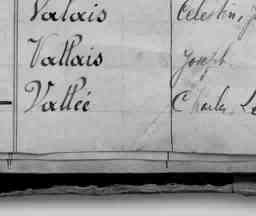 Valais Celestin, J
Vallais Joseph
Vallée Charles, Lo